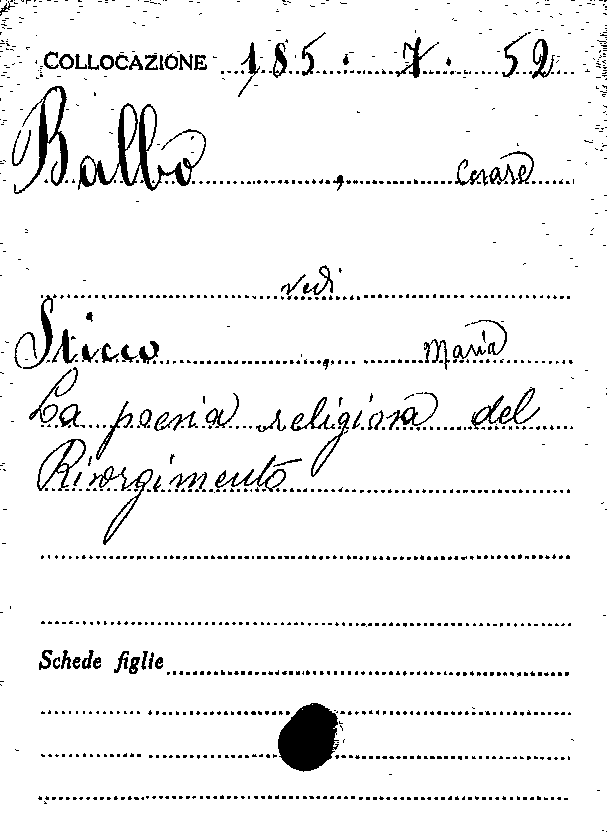 COLLOCAZIONE 185. 7. 52
Balbo, Cesare
vedi
Sticco, Maria
La poesia religiosa del
Risorgimento
Schede figlie